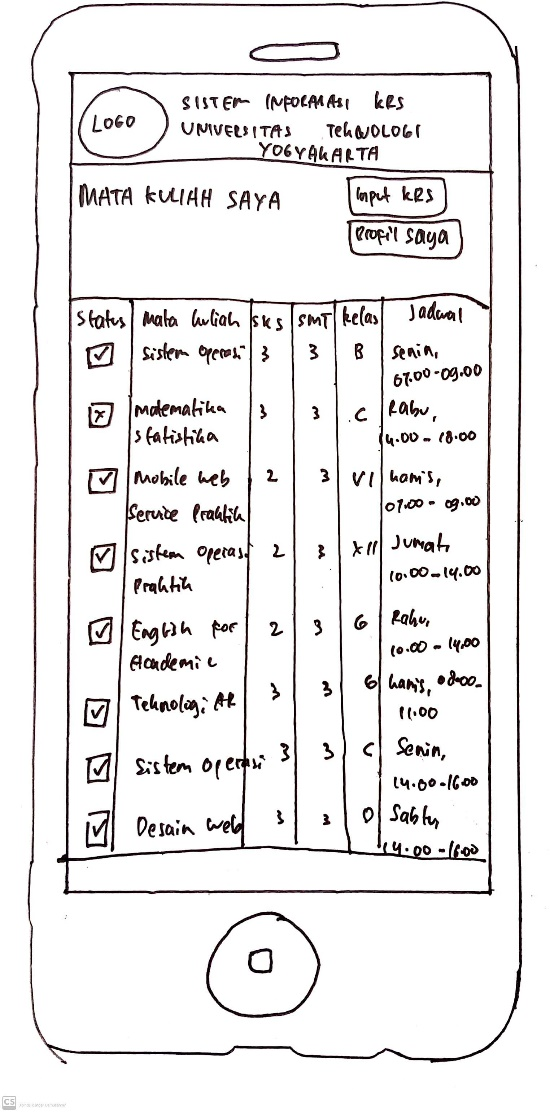 LOGO
SISTEM INFORMASI KRS
UNIVERSITAS TEKNOLOGI
YOGYAKARTA
MATA KULIAH SAYA
Input KRS
Profil Saya
Status Mata kuliah SKS SMT kelas Jadwal
Sistem Operasi 3 3 B Senin,
07.00-09.00
Matematika 3 3 C Rabu,
Statistika 14.00 - 18.00
Mobile Web 2 3 VI kamis,
Service Praktik 07.00 - 09.00
Sistem Operasi 2 3 XII Jumat,
Praktik 10.00-14.00
English For 2 3 G Rabu,
Academic 10.00 - 14.00
Teknologi AR 3 3 G kamis, 08.00-
11.00
Sistem Operasi 3 3 C Senin,
14.00-16.00
Desain Web 3 3 D Sabtu,
14.00 - 16.00
CS